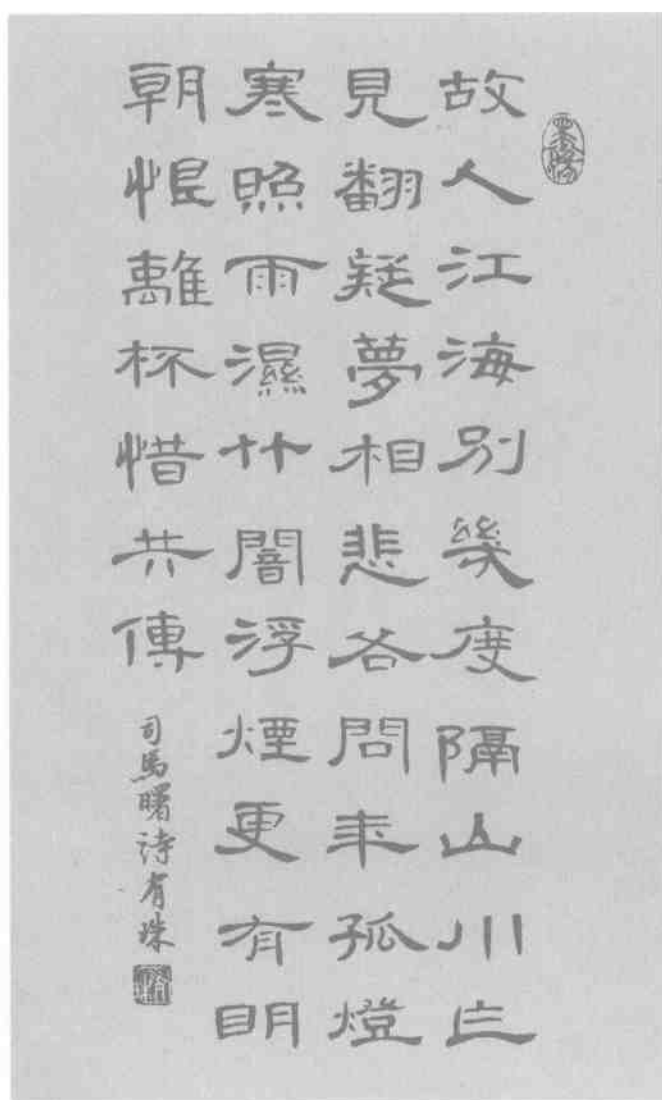 故人江海別幾度隔山川乍
見翻疑夢相悲各問年孤燈
寒照雨濕竹闇浮煙更有明
朝恨離杯惜共傳
司馬曙诗有珠